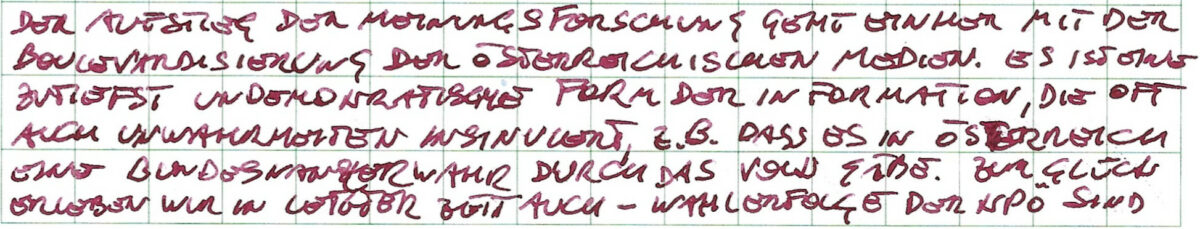 DER AUFSTIEG DER MEINUNGSFORSCHUNG GEHT EINHER MIT DER
BOULEVARDISIERUNG DER ÖSTERREICHISCHEN MEDIEN. ES IST EINE
ZUTIEFST UNDEMOKRATISCHE FORM DER INFORMATION, DIE OFT
AUCH UNWAHRHEITEN INSINUIERT, Z.B. DASS ES IN ÖSTERREICH
EINE BUNDESKANZLERWAHL DURCH DAS VOLK GÄBE. ZUM GLÜCK
ERLEBEN WIR IN LETZTER ZEIT AUCH – WAHLERFOLGE DER KPÖ SIND